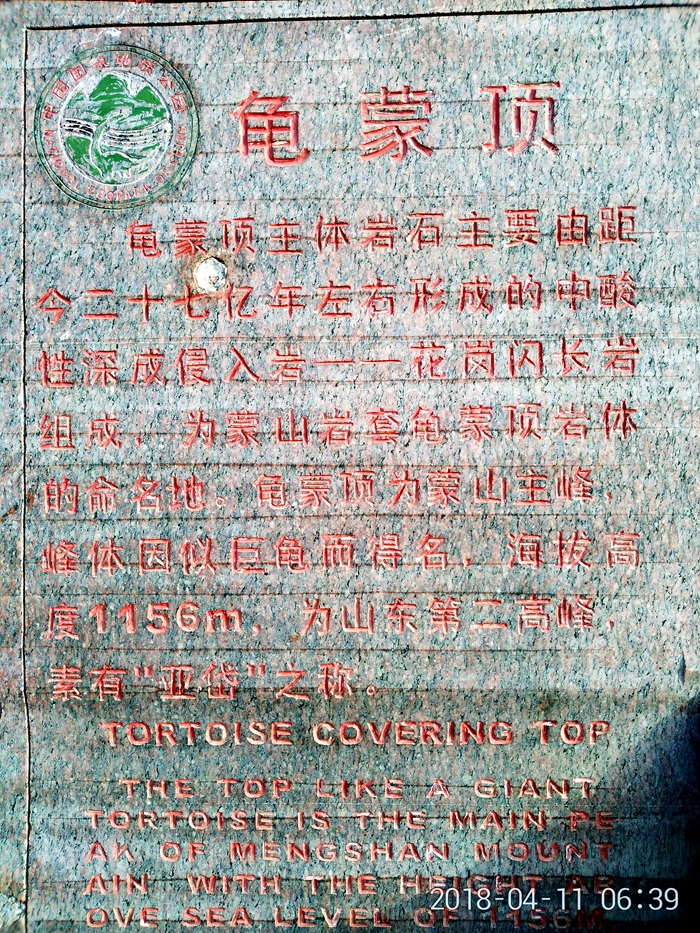 中国国家地质公园
龟蒙顶
龟蒙顶主体岩石主要由距
今二十七亿年左右形成的中酸
性深成侵入岩——花岗闪长岩
组成，为蒙山岩套龟蒙顶岩体
的命名地。龟蒙顶为蒙山主峰，
峰体因似巨龟而得名，海拔高
度1156m，为山东第二高峰，
素有"亚岱"之称。
TORTOISE COVERING TOP
THE TOP LIKE A GIANT
TORTOISE IS THE MAIN PE
AK OF MENGSHAN MOUNT
AIN WITH THE HEIGHT AB
OVE SEA LEVEL OF 1156M.
2018-04-11 06:39